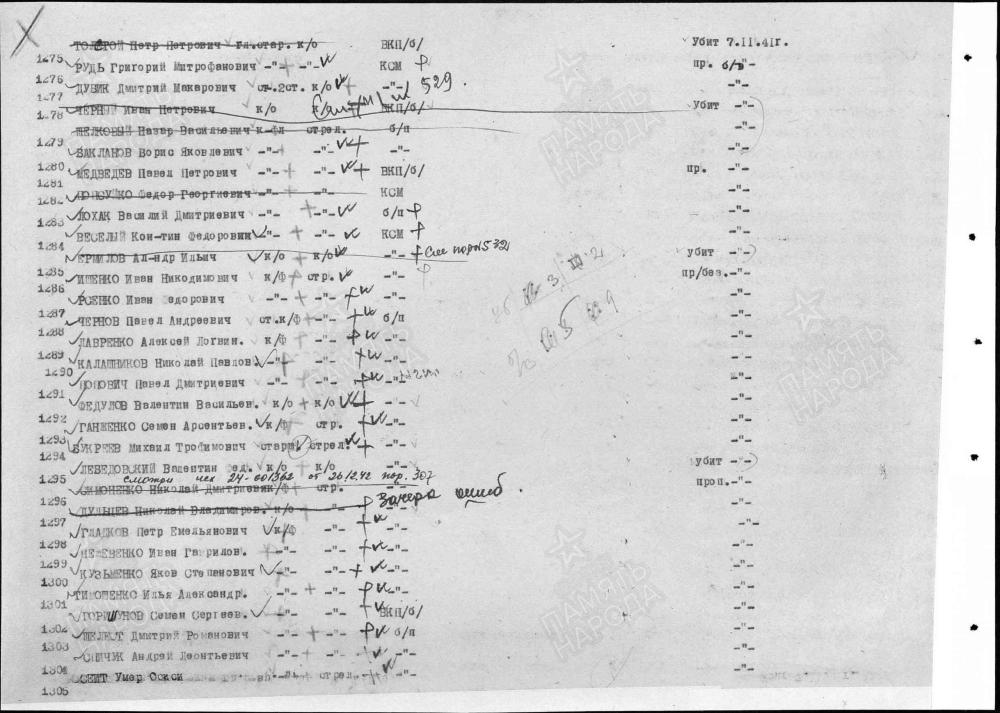 ТОЛСТОЙ Петр Петрович гл.стар. к/о ВКП/б/ Убит 7.II.4Iг.
1275
РУДЬ Григорий Митрофанович -"- -"- КСМ пр. б/в"-
1276
ДУБИК Дмитрий Макарович ст.2ст. к/о -"- 529. -"-
1277
ЧЕРНЫЙ Иван Петрович к/о к/ ВКП/б/ Убит -"-
1278
ШЕЛКОВЫЙ Назар Васильевич к-фл стрел. б/п -"-
1279
БАКЛАНОВ Борис Яковлевич -"- -"- -"- -"-
1280
МЕДВЕДЕВ Павел Петрович -"- -"- ВКП/б/ пр. -"-
1281
Федор Георгиевич -"- -"- КСМ -"-
1282
ЛОХАК Василий Дмитриевич -"- -"- б/п -"-
1283
ВЕСЕЛЫЙ Кон-тин Федорович -"- -"- КСМ -"-
1284
ЕРМИЛОВ Ал-ндр Ильич к/о к/о -"- См пор№532 убит -"-
1285
ИЩЕНКО Иван Никодимович к/ф стр. -"- пр/без. -"-
1286
Иван едорович -"- -"- -"- -"-
1287
ЧЕРНОВ Павел Андреевич ст.к/ф -"- б/п -"-
1288
ЛАВРЕНКО Алексей Логвин. к/ф -"- -"- -"-
1289
КАЛАШНИКОВ Николай Павлов. -"- -"- -"- -"-
1290
НОНОВИЧ Павел Дмитриевич -"- -"- -"- -"-
1291
ФЕДУЛОВ Валентин Васильев. к/о к/о -"- -"-
1292
ГАНЖЕНКО Семен Арсентьев. к/ф стр. -"- -"-
1293
БУКРЕЕВ Михаил Трофимович старш. стрел. -"- -"-
1294
ЛЕБЕДОВСКИЙ Валентин Фед. к/о к/о -"- убит -"-
смотри исх 24-001362 от 26.12.42 пор. 307
1295
СИМОНЕНКО Николай Дмитриевич к/ф стр. -"- проп. -"-
1296
ДУЛЬЦЕВ Николай Владимиров. к/о -"- Зачерк ошиб. -"-
1297
ГЛАДКОВ Петр Емельянович к/ф -"- -"- -"-
1298
Иван Гаврилов. -"- -"- -"- -"-
1299
КУЗЬМЕНКО Яков Степанович -"- -"- -"- -"-
1300
ТИМОШЕНКО Илья Александр. -"- -"- -"- -"-
1301
ГОРШУНОВ Семен Сергеев. -"- -"- ВКП/б/ -"-
1302
ШЕЛЕСТ Дмитрий Романович -"- -"- б/п -"-
1303
СПИЧУК Андрей Леонтьевич -"- -"- -"- -"-
1304
СЕИТ Умер Осман -"- стрел. -"- -"-
1305
ПАМЯТЬ НАРОДА